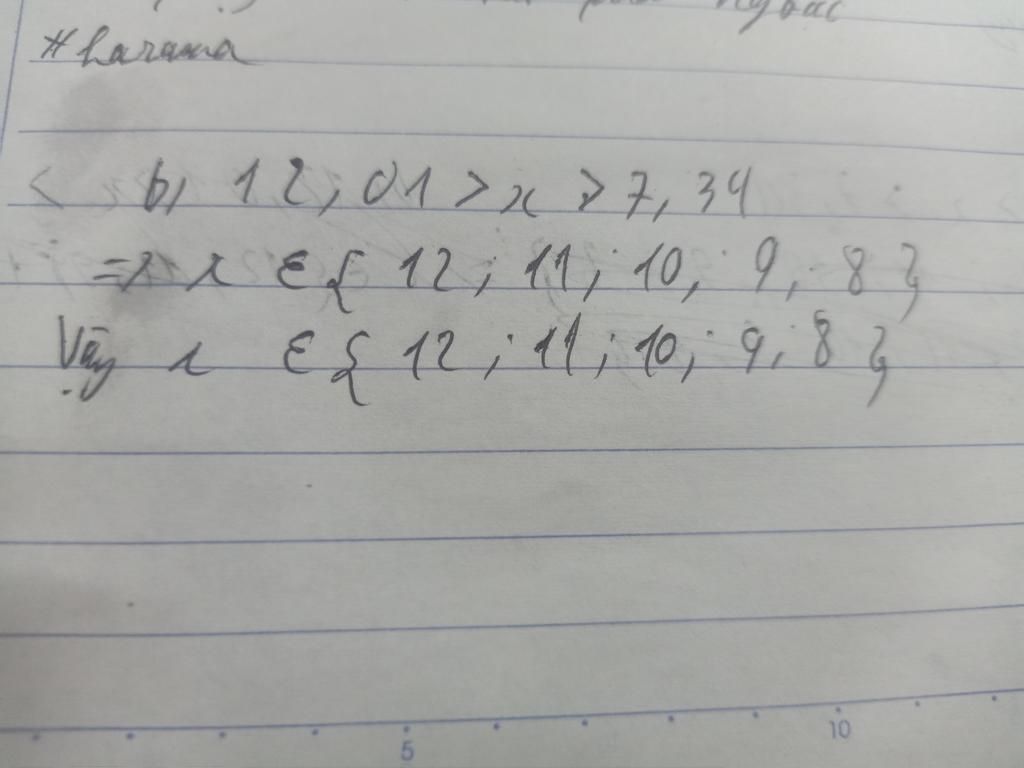 b, 12,01 > x > 7,34
=> x ∈ { 12 ; 11 ; 10 ; 9 ; 8 }
Vậy x ∈ { 12 ; 11 ; 10 ; 9 ; 8 }
5 10